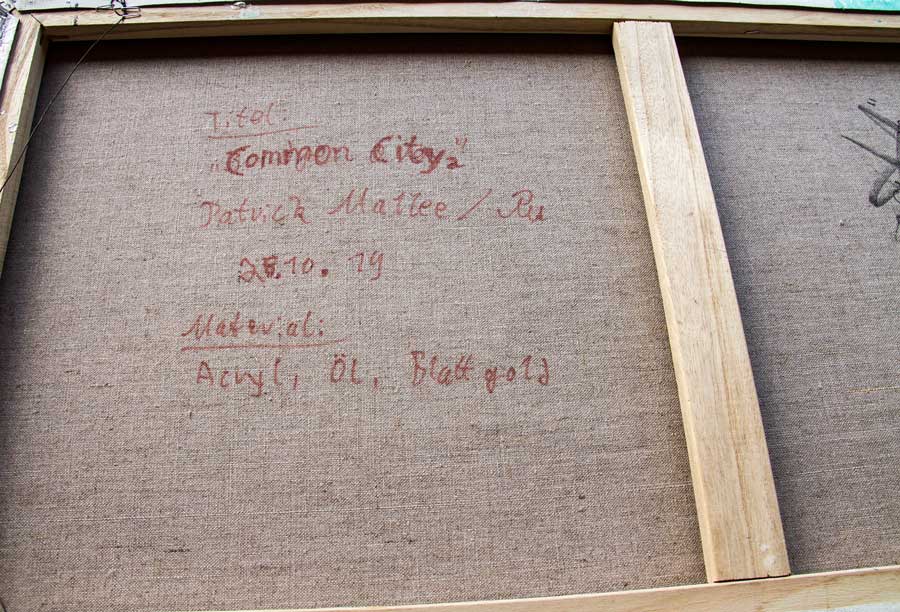 Titel:
„Common City2"
Patrick Mallee / Ru
10.19
Material:
Acryl, Öl, Blattgold